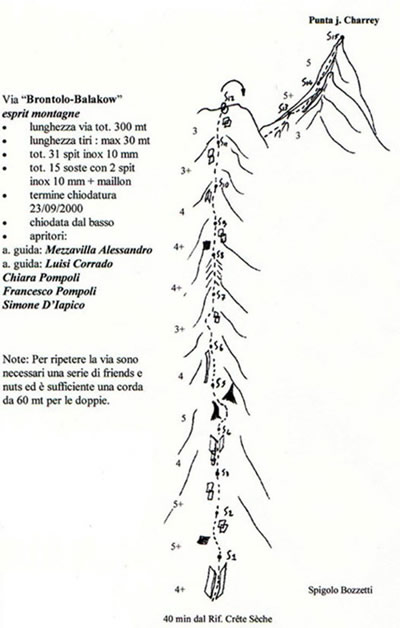 Punta j. Charrey
Via “Brontolo-Balakow”
esprit montagne
• lunghezza via tot. 300 mt
• lunghezza tiri : max 30 mt
• tot. 31 spit inox 10 mm
• tot. 15 soste con 2 spit
inox 10 mm + maillon
• termine chiodatura
23/09/2000
• chiodata dal basso
• apritori:
a. guida: Mezzavilla Alessandro
a. guida: Luisi Corrado
Chiara Pompoli
Francesco Pompoli
Simone D’Iapico
Note: Per ripetere la via sono
necessari una serie di friends e
nuts ed è sufficiente una corda
da 60 mt per le doppie.
S15
5
S14
5+
S13
3
S12
3
S11
3+
S10
4
S9
4+
S8
4+
S7
3+
S6
4
S5
5
S4
4
S3
5+
S2
5+
S1
4+
Spigolo Bozzetti
40 min dal Rif. Crête Sèche